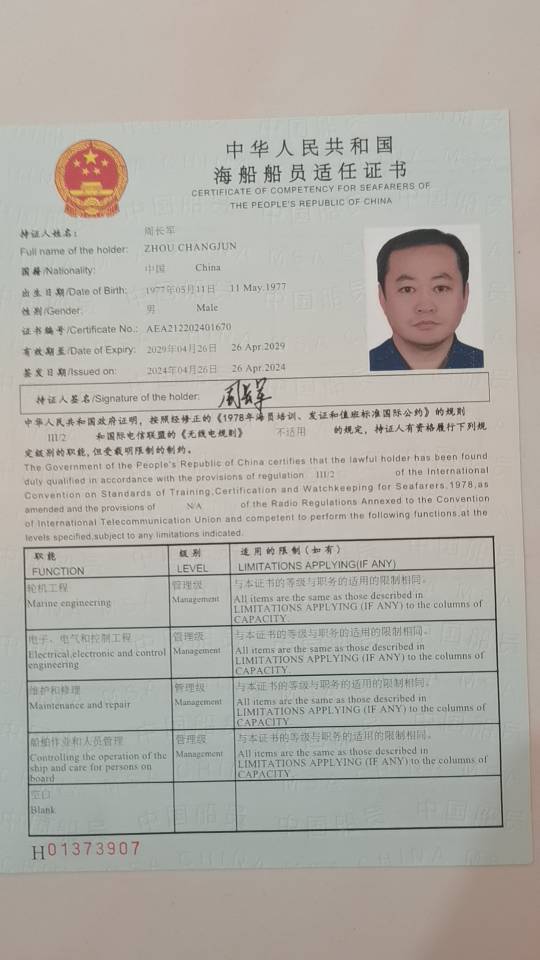 中华人民共和国
海船船员适任证书
CERTIFICATE OF COMPETENCY FOR SEAFARERS OF
THE PEOPLE'S REPUBLIC OF CHINA
持证人姓名: 周长军
Full name of the holder: ZHOU CHANGJUN
国籍/Nationality: 中国 China
出生日期/Date of Birth: 1977年05月11日 11 May.1977
性别/Gender: 男 Male
证书编号/Certificate No.: AEA212202401670
有效期至/Date of Expiry: 2029年04月26日 26 Apr.2029
签发日期/Issued on: 2024年04月26日 26 Apr.2024
持证人签名/Signature of the holder: 周长军
中华人民共和国政府证明，按照经修正的《1978年海员培训、发证和值班标准国际公约》的规则
III/2 和国际电信联盟的《无线电规则》 不适用 的规定，持证人有资格履行下列规
定级别的职能,但受载明限制的制约。
The Government of the People's Republic of China certifies that the lawful holder has been found
duly qualified in accordance with the provisions of regulation III/2 of the International
Convention on Standards of Training,Certification and Watchkeeping for Seafarers,1978,as
amended and the provisions of N/A of the Radio Regulations Annexed to the Convention
of International Telecommunication Union and competent to perform the following functions,at the
levels specified,subject to any limitations indicated.
职能 级别 适用的限制（如有）
FUNCTION LEVEL LIMITATIONS APPLYING(IF ANY)
轮机工程 管理级 与本证书的等级与职务的适用的限制相同。
Marine engineering Management All items are the same as those described in
LIMITATIONS APPLYING (IF ANY) to the columns of
CAPACITY.
电子、电气和控制工程 管理级 与本证书的等级与职务的适用的限制相同。
Electrical,electronic and control Management All items are the same as those described in
engineering LIMITATIONS APPLYING (IF ANY) to the columns of
CAPACITY.
维护和修理 管理级 与本证书的等级与职务的适用的限制相同。
Maintenance and repair Management All items are the same as those described in
LIMITATIONS APPLYING (IF ANY) to the columns of
CAPACITY.
船舶作业和人员管理 管理级 与本证书的等级与职务的适用的限制相同。
Controlling the operation of the Management All items are the same as those described in
ship and care for persons on LIMITATIONS APPLYING (IF ANY) to the columns of
board CAPACITY.
空白
Blank
H01373907